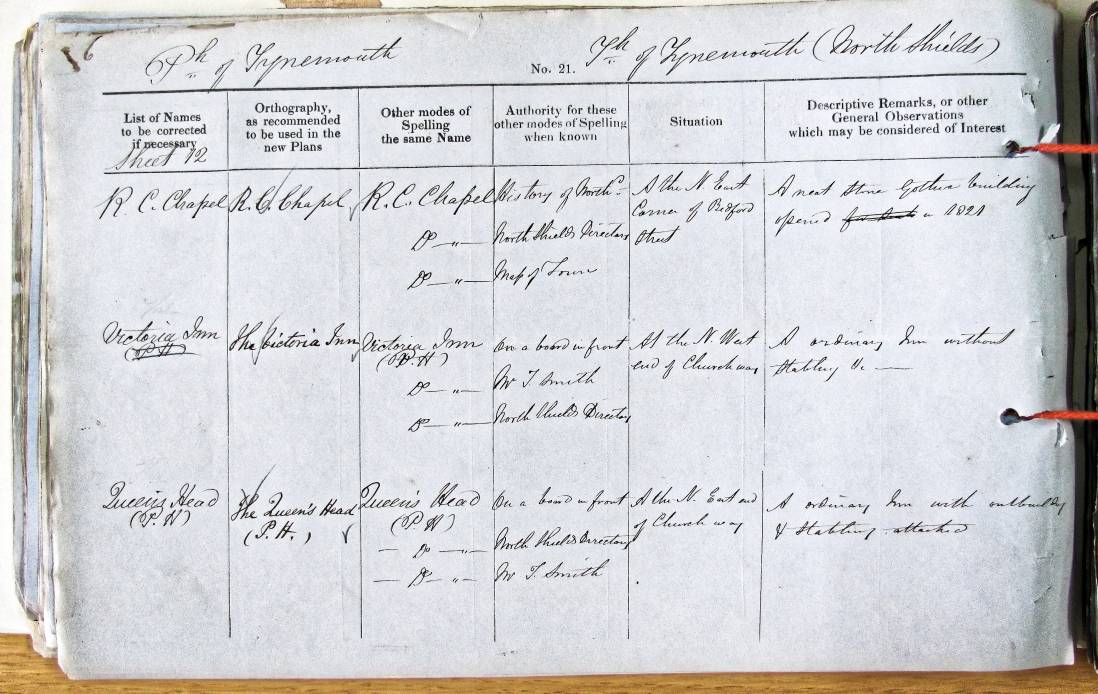 76
Ph of Tynemouth
No. 21.
Th of Tynemouth (North Shields)
List of Names
to be corrected
if necessary
Orthography,
as recommended
to be used in the
new Plans
Other modes of
Spelling
the same Name
Authority for these
other modes of Spelling
when known
Situation
Descriptive Remarks, or other
General Observations
which may be considered of Interest
Sheet 12
R. C. Chapel
R. C. Chapel
R. C. Chapel
Do — " —
Do — " —
History of North'd
North Shields Directory
Map of Town
At the N. East
Corner of Bedford
Street
A neat stone Gothic building
opened in 1821
Victoria Inn
(P.H)
The Victoria Inn
Victoria Inn
(P.H)
Do — " —
Do — " —
On a board in front
Mr T. Smith
North Shields Directory
At the N. West
end of Church way
A ordinary Inn without
Stabling &c —
Queen's Head
(P.H)
The Queen's Head
(P.H.)
Queen's Head
(P.H)
— Do — " —
— Do — " —
On a board in front
North Shields Directory
Mr T. Smith
At the N. East end
of Church way
A ordinary Inn with outbuildg
& Stabling attached